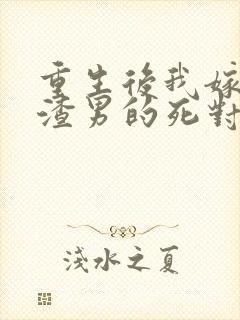 重生後我嫁
渣男的死對
淺水之夏